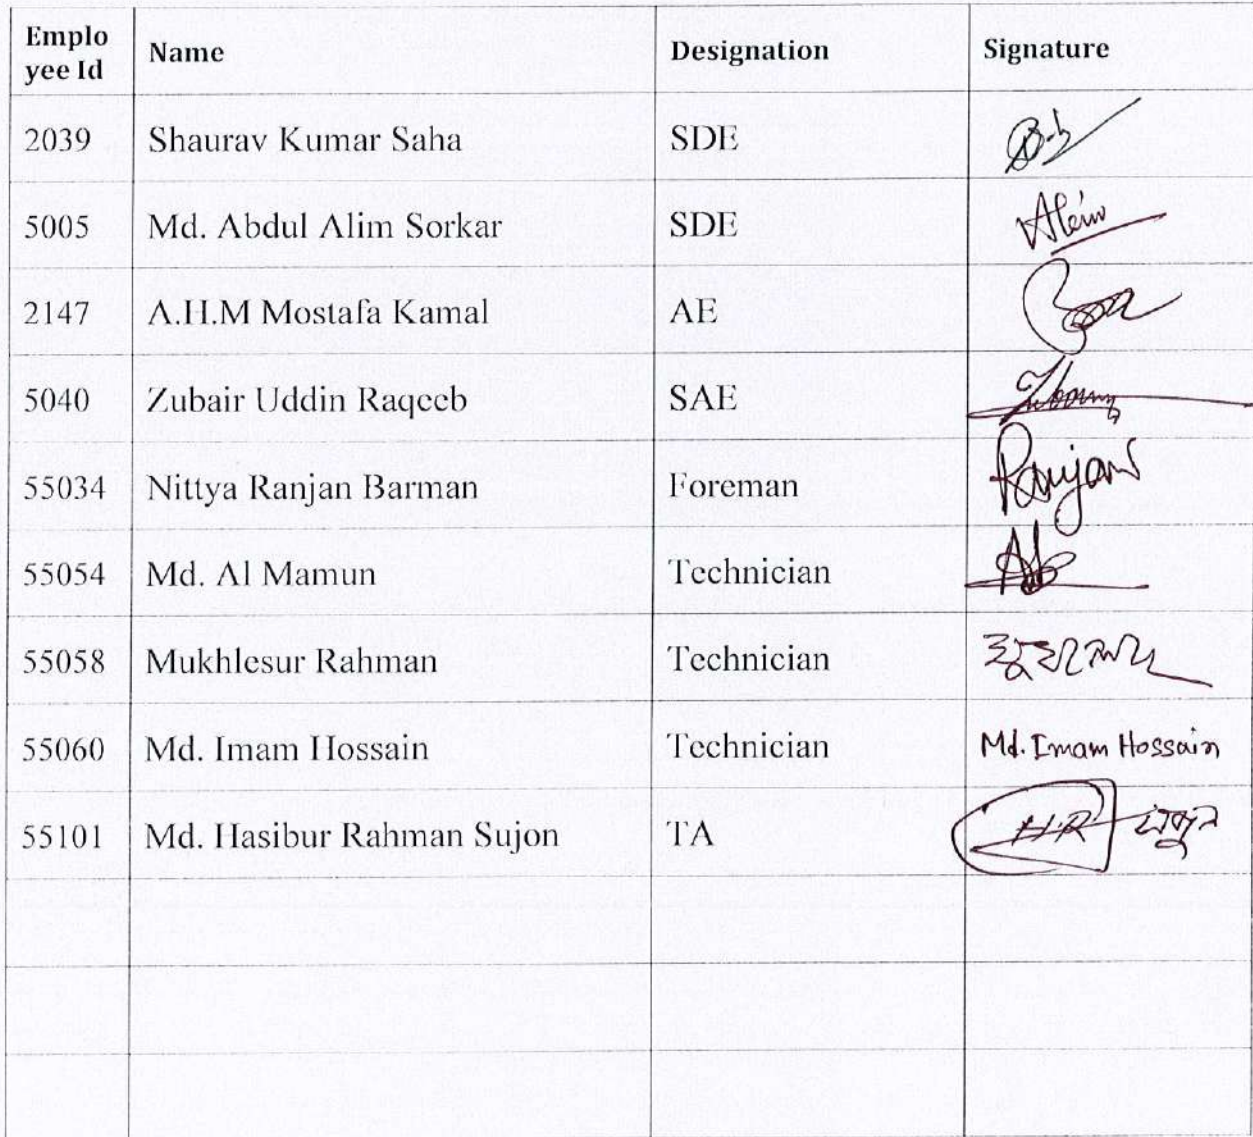 Emplo
yee Id Name Designation Signature
2039 Shaurav Kumar Saha SDE
5005 Md. Abdul Alim Sorkar SDE Alim
2147 A.H.M Mostafa Kamal AE
5040 Zubair Uddin Raqeeb SAE
55034 Nittya Ranjan Barman Foreman Ranjan
55054 Md. Al Mamun Technician
55058 Mukhlesur Rahman Technician
55060 Md. Imam Hossain Technician Md. Imam Hossain
55101 Md. Hasibur Rahman Sujon TA H.R